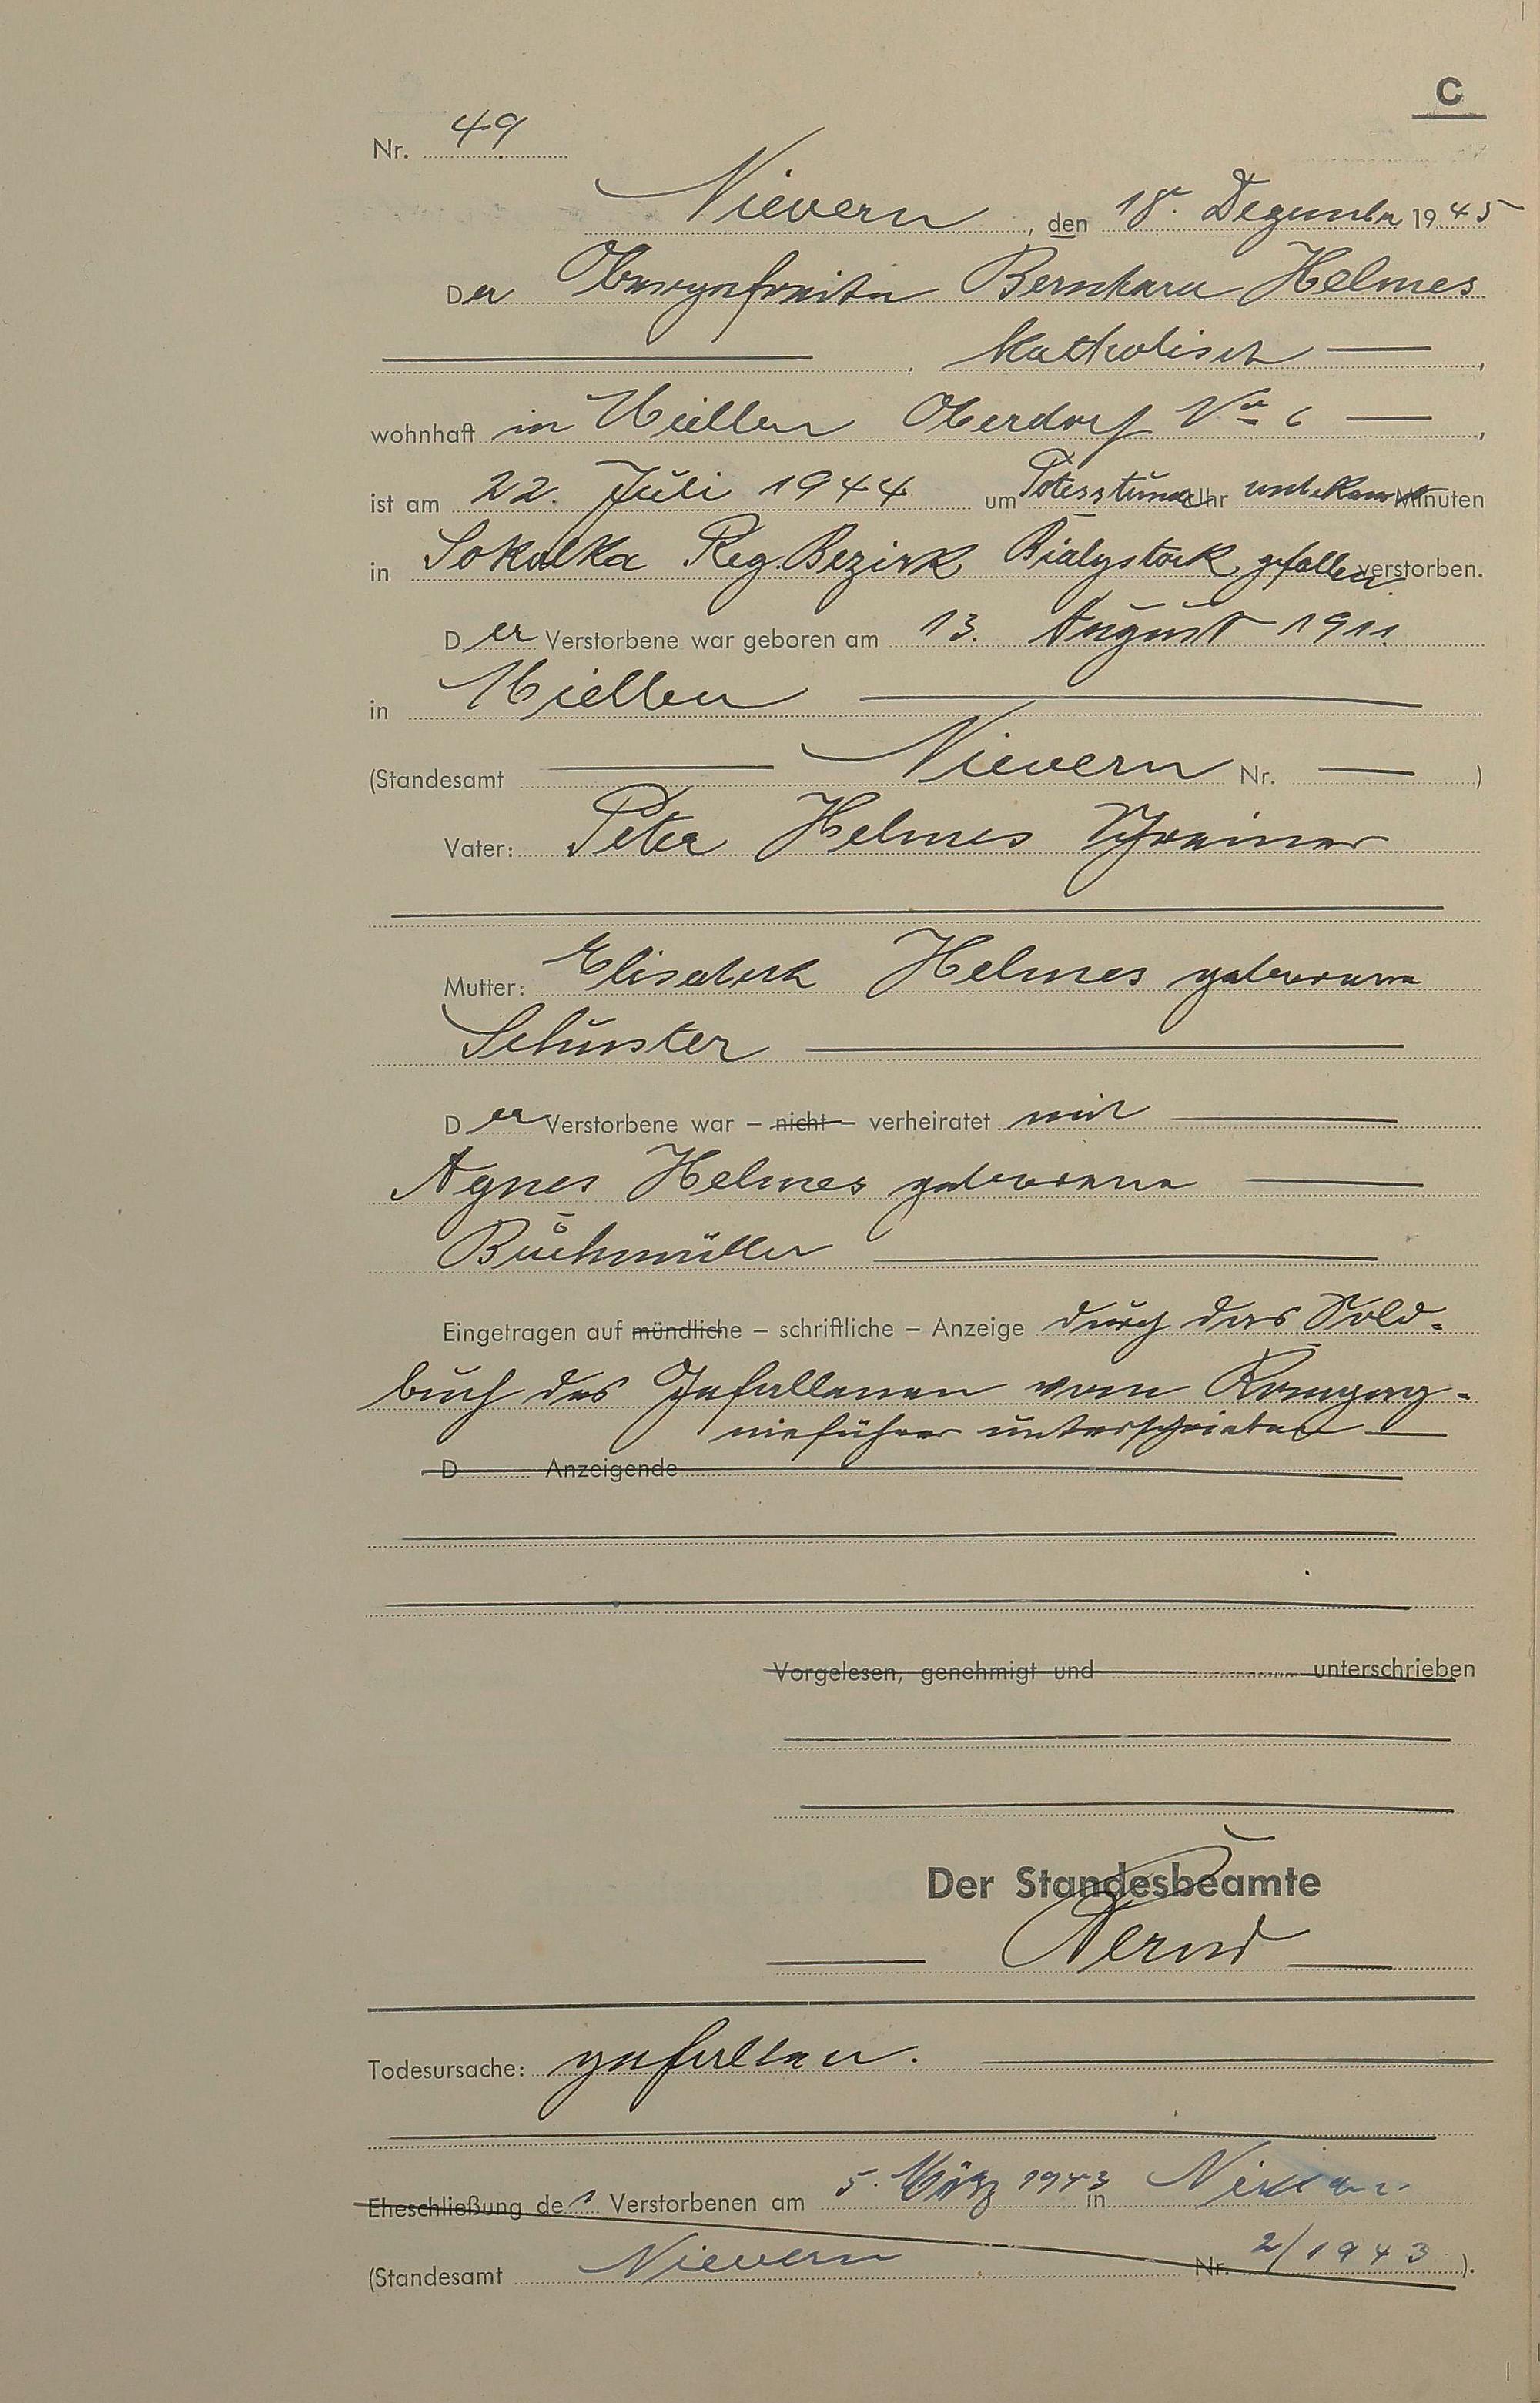 C
Nr. 49
Nievern, den 18. Dezember 1945
Der Obergefreiter Bernhard Helmes
katholisch
wohnhaft in Miellen Oberdorf No 6
ist am 22. Juli 1944 um Todesstunde Uhr unbekannt Minuten
in Sokulka Reg. Bezirk Bialystock gefallen verstorben.
Der Verstorbene war geboren am 13. August 1911.
in Miellen
(Standesamt Nievern Nr. )
Vater: Peter Helmes Schreiner
Mutter: Elisabeth Helmes geborene
Schuster
Der Verstorbene war – nicht – verheiratet mit
Agnes Helmes geborene
Buchmüller
Eingetragen auf mündliche – schriftliche – Anzeige durch das Sold=
buch des Gefallenen vom Kompag=
nieführer unterschrieben
D Anzeigende
Vorgelesen, genehmigt und unterschrieben
Der Standesbeamte
Todesursache: gefallen.
Eheschließung des Verstorbenen am 5. März 1943 in
(Standesamt Nievern Nr. 2/1943 ).